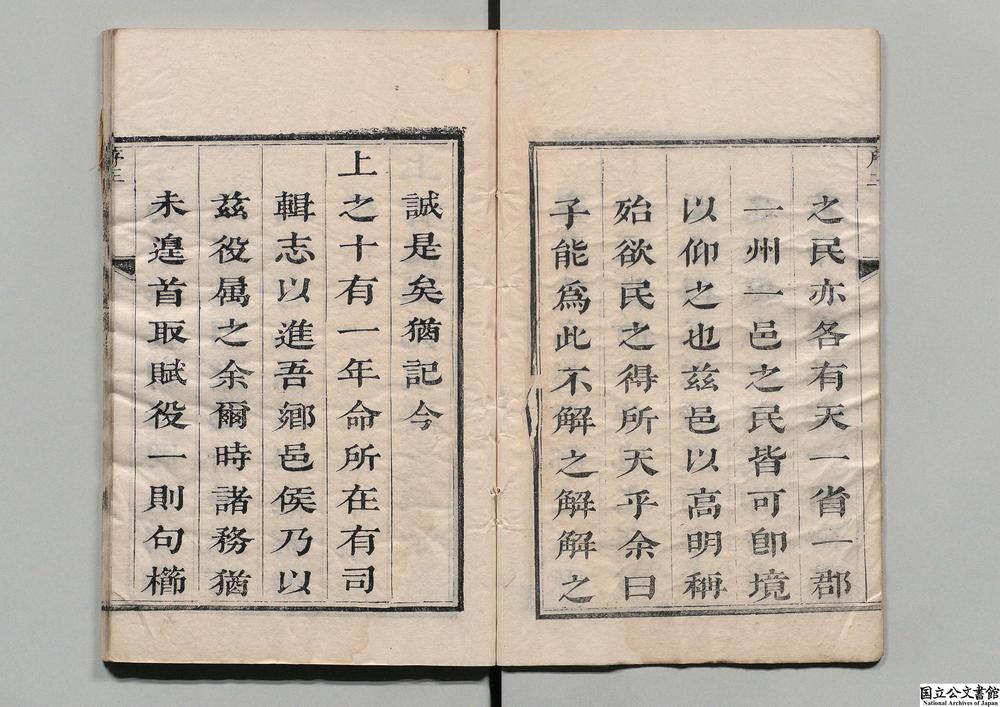 之民亦各有天一省一郡
一州一邑之民皆可卽境
以仰之也茲邑以高明稱
殆欲民之得所天乎余曰
子能爲此不解之解解之
誠是矣猶記今
上之十有一年命所在有司
輯志以進吾鄉邑侯乃以
茲役属之余爾時諸務猶
未遑首取賦役一則句櫛
国立公文書館
National Archives of Japan